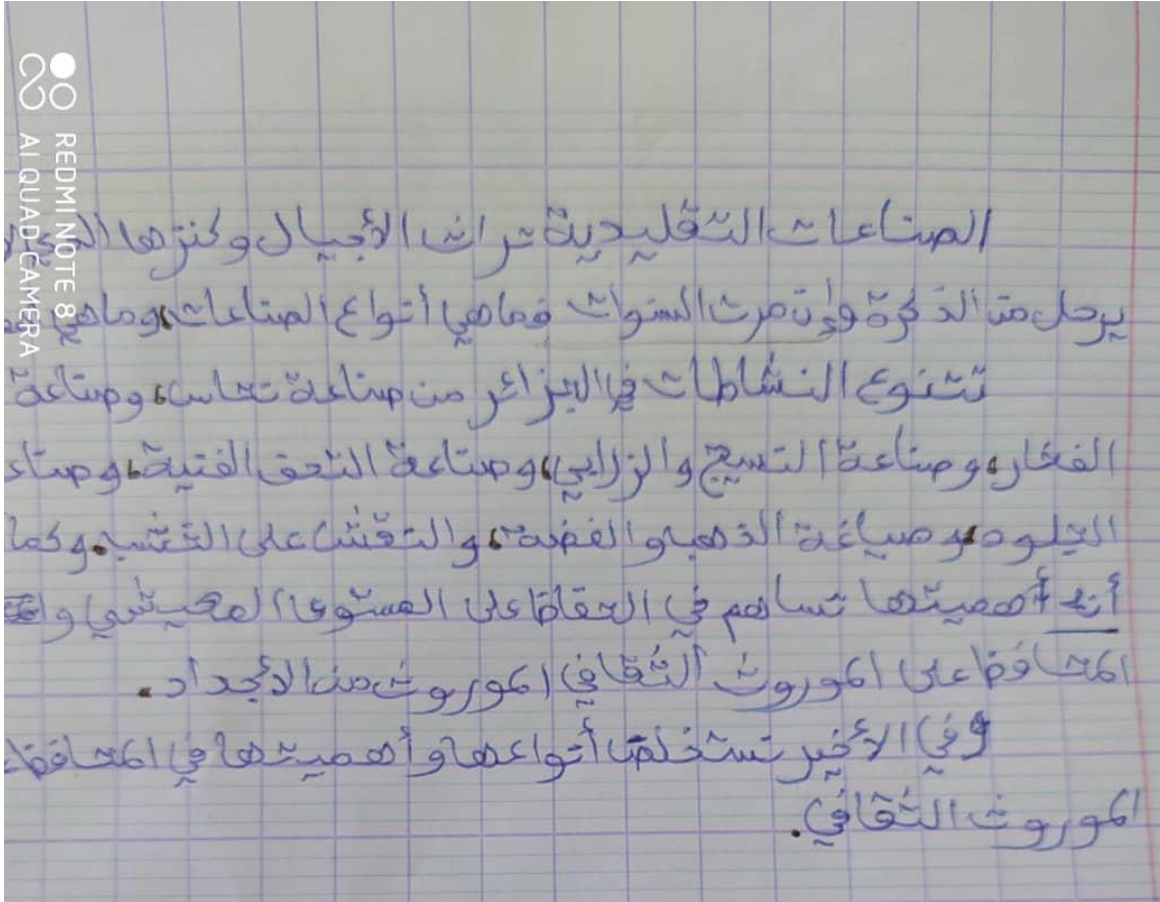 الصناعات التقليدية تراث الأجيال وكنزها الذي لا
يرحل من الذكرة وإن مرت السنوات فما هي أنواع الصناعات، وما هي
تتنوع النشاطات في الجزائر من صناعة نحاس، وصناعة
الفخار، وصناعة النسيج والزرابي، وصناعة التحف الفنية، وصناعة
الجلود، وصياغة الذهب والفضة، والنقش على الخشب. وكما
أن أهميتها تساهم في الحفاظ على المستوى المعيشي و
المحافظ على الموروث الثقافي الموروث من الأجداد.
وفي الأخير نستخلص أنواعها وأهميتها في المحافظة
الموروث الثقافي.
REDMI NOTE 8
AI QUAD CAMERA